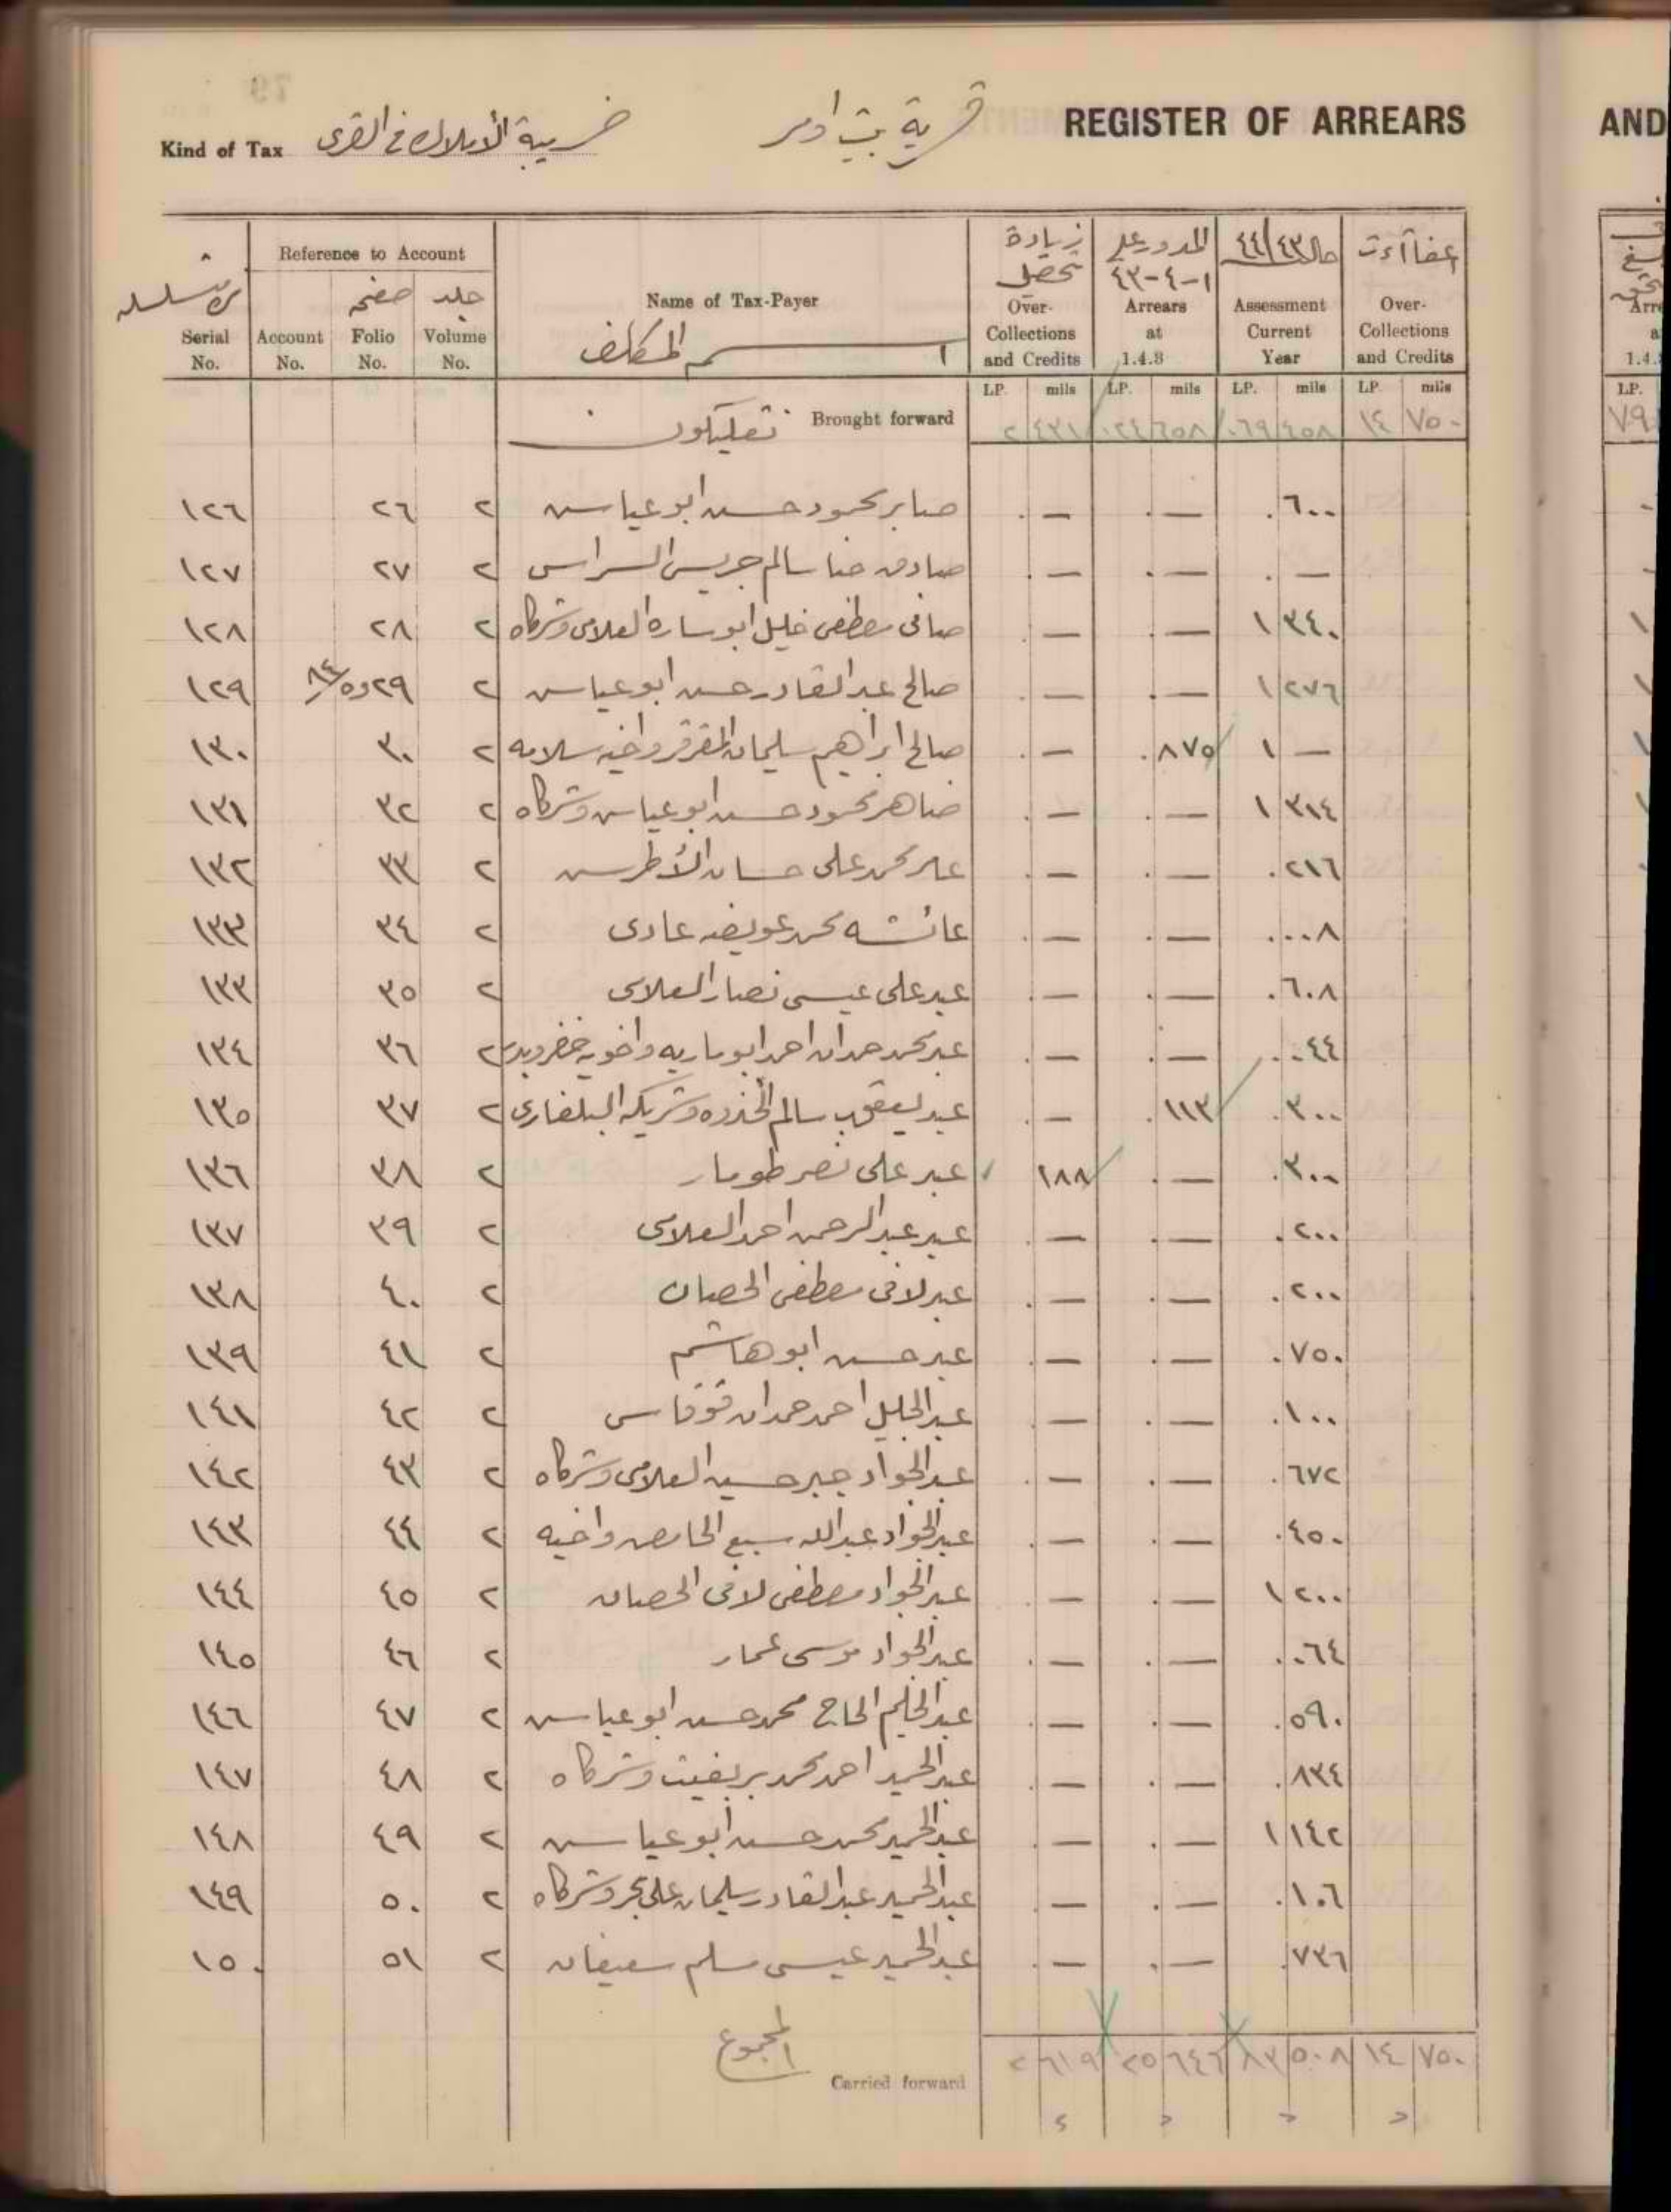 REGISTER OF ARREARS
قرية بيت امر
Kind of Tax ضريبة الأملاك في القرى
AND
Serial No.
Reference to Account
Account No.
صفحه Folio No.
جلد Volume No.
Name of Tax-Payer
اسم المكلف
زيادة تحصيل Over-Collections and Credits
المدور على ١-٤-٤٣ Arrears at 1.4.8
حال ٤٤/٤٣ Assessment Current Year
اعفاآت Over-Collections and Credits
LP. mils LP. mils LP. mils LP. mils
Brought forward ٢ ٤٣١ ٠٢٤ ٦٥٨ ٠٦٩ ٤٥٨ ١٤ ٧٥٠
١٢٦ ٢٦ ٢ صابر محمود حسن ابو عياش ٠ — ٠ — ٠ ٦٠٠
١٢٧ ٢٧ ٢ صادق حنا سالم جريس ٠ — ٠ — ٠ —
١٢٨ ٢٨ ٢ صافي مصطفى خليل ابو ساره العلامي وشركاه ٠ — ٠ — ١ ٣٤٠
١٢٩ ٢٩ و ٨٤/٥ ٢ صالح عبد القادر حسن ابو عياش ٠ — ٠ — ١ ٢٧٦
١٣٠ ٣٠ ٢ صالح ابراهيم سليمان المقرقر واخيه سلامه ٠ — ٠ ٨٧٥ ١ —
١٣١ ٣٢ ٢ ضاهر محمود حسن ابو عياش وشركاه ٠ — ٠ — ١ ٣١٤
١٣٢ ٣٣ ٢ محمد علي حسان الأطرش ٠ — ٠ — ٠ ٢١٦
١٣٣ ٣٤ ٢ عائشه محمد عويضه عادي ٠ — ٠ — ٠ ٠٠٨
١٣٣ ٣٥ ٢ عبد علي عيسى نصار العلامي ٠ — ٠ — ٠ ٦٠٨
١٣٤ ٣٦ ٢ عبد محمد حمدان احمد ابو ماريه واخويه خضر وبدر ٠ — ٠ — ٠ ٠٤٤
١٣٥ ٣٧ ٢ عبد يعقوب سالم وشريكه البلغاري ٠ — ٠ ١١٣ ٠ ٣٠٠
١٣٦ ٣٨ ٢ عبد علي نصر طومار ١٨٨ ٠ — ٠ ٣٠٠
١٣٧ ٣٩ ٢ عبد عبد الرحمن احمد العلامي ٠ — ٠ — ٠ ٢٠٠
١٣٨ ٤٠ ٢ عبد لافي مصطفى الحصان ٠ — ٠ — ٠ ٢٠٠
١٣٩ ٤١ ٢ عبد حسن ابو هاشم ٠ — ٠ — ٠ ٧٥٠
١٤١ ٤٢ ٢ عبد الجليل احمد حمدان قوقاس ٠ — ٠ — ٠ ١٠٠
١٤٢ ٤٣ ٢ عبد الجواد جبر حسين العلامي وشركاه ٠ — ٠ — ٠ ٦٧٢
١٤٣ ٤٤ ٢ عبد الجواد عبد الله سبع الحامض واخيه ٠ — ٠ — ٠ ٤٥٠
١٤٤ ٤٥ ٢ عبد الجواد مصطفى لافي الحصان ٠ — ٠ — ١ ٢٠٠
١٤٥ ٤٦ ٢ عبد الجواد موسى عمار ٠ — ٠ — ٠ ٠٦٤
١٤٦ ٤٧ ٢ عبد الحليم الحاج محمد حسن ابو عياش ٠ — ٠ — ٠ ٥٩٠
١٤٧ ٤٨ ٢ عبد الحميد احمد محمد بريغيث وشركاه ٠ — ٠ — ٠ ٨٣٤
١٤٨ ٤٩ ٢ عبد الحميد محمد حسن ابو عياش ٠ — ٠ — ١ ١٤٢
١٤٩ ٥٠ ٢ عبد الحميد عبد القادر سليمان علي بحر وشركاه ٠ — ٠ — ٠ ١٠٦
١٥٠ ٥١ ٢ عبد الحميد عيسى مسلم سعيفان ٠ — ٠ — ٠ ٧٣٦
المجموع
Carried forward ٢ ٦١٩ ٢٥ ٦٤٦ ٨٣ ٥٠٨ ١٤ ٧٥٠